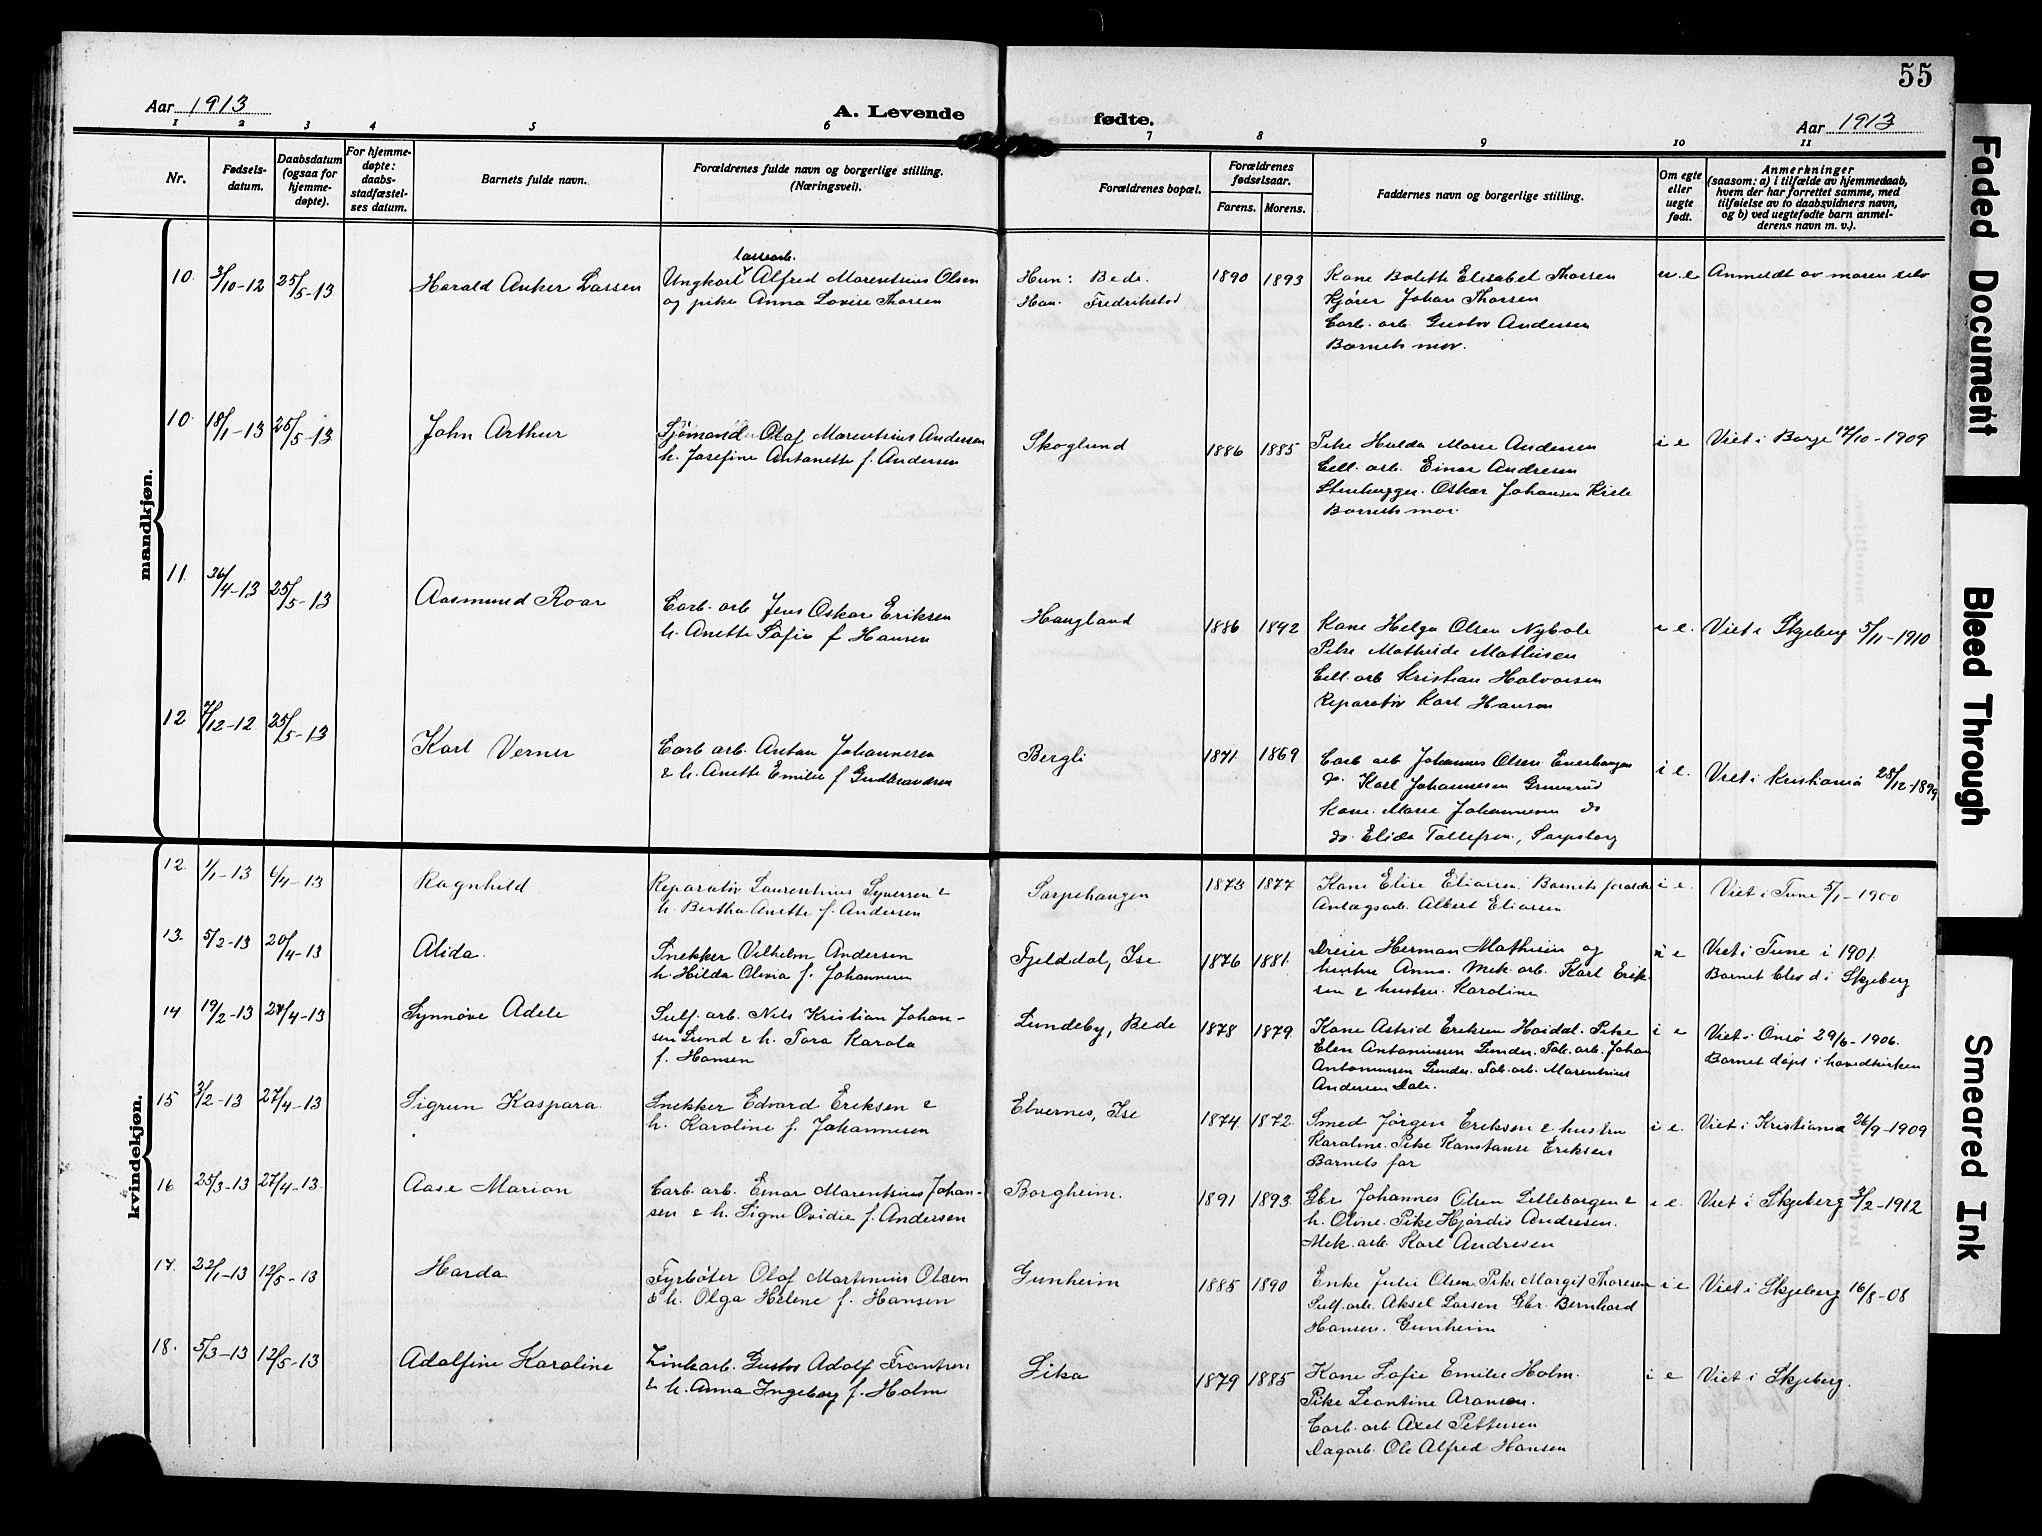 55
Aar 1913
A. Levende
fødte.
Aar 1913
1 2 3 4 5 6 7 8 9 10 11
Nr.
Fødsels-
datum.
Daabsdatum
(ogsaa for
hjemme-
døpte).
For hjemme-
døpte:
daabs-
stadfæstel-
ses datum.
Barnets fulde navn.
Forældrenes fulde navn og borgerlige stilling.
(Næringsvei).
Forældrenes bopæl.
Forældrenes
fødselsaar.
Farens. Morens.
Faddernes navn og borgerlige stilling.
Om egte
eller
uegte
født.
Anmerkninger
(saasom: a) i tilfælde av hjemmedaab,
hvem der har forrettet samme, med
tilføielse av to daabsvidners navn,
og b) ved uegtefødte barn anmel-
derens navn m. v.).
mandkjøn.
10. 3/10-12 25/5-13 Harald Anker Larssen
lossearb.
Ungkarl Alfred Marentsius Olsen
og pike Anna Lovise Thorsen
Hun: Bede.
Han. Fredrikstad
1890 1893
Kone Bolette Elisabet Thorsen
Kjører Johan Thorsen
Carb. arb. Gustav Andersen
Barnets mor.
u. e Anmeldt av moren selv
10. 18/1-13 25/5-13 John Arthur
Sjømand Olaf Marentsius Andersen
h. Josefine Antonette f. Andersen
Skoglund 1886 1885
Pike Hulda Marie Andersen
Cell. arb. Einar Andresen
Stenhugger. Oskar Johansen Kirle
Barnets mor.
i e Viet i Borge 17/10-1909
11. 26/4-13 25/5-13 Aasmund Roar
Carb. arb Jens Oskar Eriksen
h. Anette Sofie f Hansen
Haugland 1886 1892
Kone Helga Olsen Nybole
Pike Mathilde Mathisen
Cell. arb Kristian Halvorsen
Reparatør Karl Hansen
i e. Viet i Skjeberg 5/11-1910
12 7/12-12 25/5-13 Karl Verner
Carb arb. Anton Johannesen
& h. Anette Emilie f Gudbrandsen
Bergli 1871 1869
Carb arb Johannes Olsen Enerhaugen
do. Karl Johannesen Grimsrud
Kone. Marie Johannesen do
do. Elida Tollefsen, Sarpsborg
i e. Viet i Kristiania 25/12-1899
kvindekjøn.
12. 1/1-13 6/4-13 Ragnhild
Reparatør Laurentsius Syversen &
h. Bertha Anette f. Andersen
Sarpehaugen 1873 1877
Kone Elise Eliassen. Barnets foreldre
Anlægsarb. Albert Eliassen
i e. Viet i Tune 5/1-1900
13. 5/2-13 20/4-13 Alida.
Snekker Vilhelm Andersen
h. Hilda Olivia f. Johannesen
Fjelddal, Ise 1876 1881.
Dreier Herman Mathisen og
hustru Anna. Mek. arb. Karl Erik-
sen & hustru Karoline
i e Viet i Tune i 1901.
Barnet blev d i Skjeberg
14 19/2-13 27/4-13 Synnøve Adele
Sulf. arb. Nils Kristian Johan-
sen Lund & h. Tora Karola
f. Hansen
Lundeby, Bede 1878 1879.
Kone Astrid Eriksen Haidal. Pike
Elen Antoniussen Lunder. Fab. arb. Johan
Antoniussen Lunder. Fab. arb. Marentsius
Andersen Dale.
i e Viet i Onsø 29/6-1906.
Barnet døpt i hovedkirken
15 3/2-13 27/4-13 Sigrun Kaspara.
Snekker Edvard Eriksen &
h. Karoline f. Johannesen
Elvernes, Ise 1874 1872.
Smed Jørgen Eriksen & hustru
Karoline. Pike Konstanse Eriksen
Barnets far
i e. Viet i Kristiania 26/9-1909
16 25/3-13 27/4-13. Aase Marion
Carb. arb. Einar Marentsius Johan-
sen & h. Signe Ovidie f. Andersen
Borgheim. 1891 1893
Gbr Johannes Olsen Lilleborgen &
h. Oline. Pike Hjørdis Andresen.
Mek. arb. Karl Andresen
i e. Viet i Skjeberg 3/2-1912
17. 22/1-13 12/5-13 Harda
Fyrbøter Olaf Martinius Olsen
& h. Olga Helene f. Hansen
Gunheim 1885 1890
Enke Julie Olsen Pike Margit Thoresen
Sulf. arb. Aksel Larsen Gbr. Bernhard
Hansen. Gunheim
i e Viet i Skjeberg 16/8-08
18. 5/3-13 12/5-13 Adolfine Karoline
Zinkarb. Gustav Adolf Frantsen
& h. Anna Ingeborg f. Holm
Lika 1879 1885
Kone Sofie Emilie Holm.
Pike Leontine Aronsen.
Carb. arb Axel Pettersen
Dagarb. Ole Alfred Hansen
i e Viet i Skjeberg.
Faded Document
Bleed Through
Smeared Ink